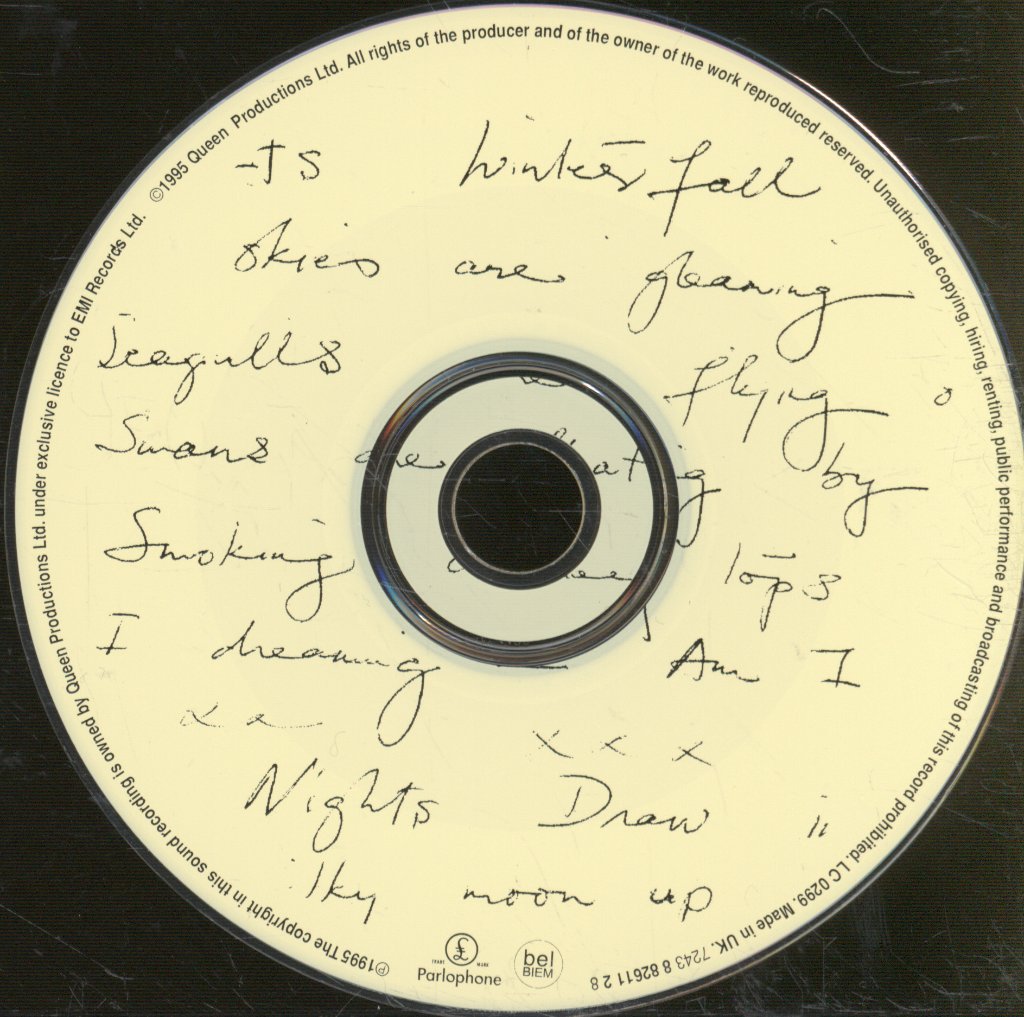 ©1995 Queen Productions Ltd. All rights of the producer and of the owner of the work reproduced reserved. Unauthorised copying, hiring, renting, public performance and broadcasting of this record prohibited. LC 0299. Made in UK. 7243 8 82611 2 8
℗1995 The copyright in this sound recording is owned by Queen Productions Ltd. under exclusive licence to EMI Records Ltd.
TS Winter fall
Skies are gleaming
Seagulls flying o
Swans are ating by
Smoking Tops
I dreaming — Am I
x x x
Nights Draw i
lky moon up
Parlophone
bel
BIEM